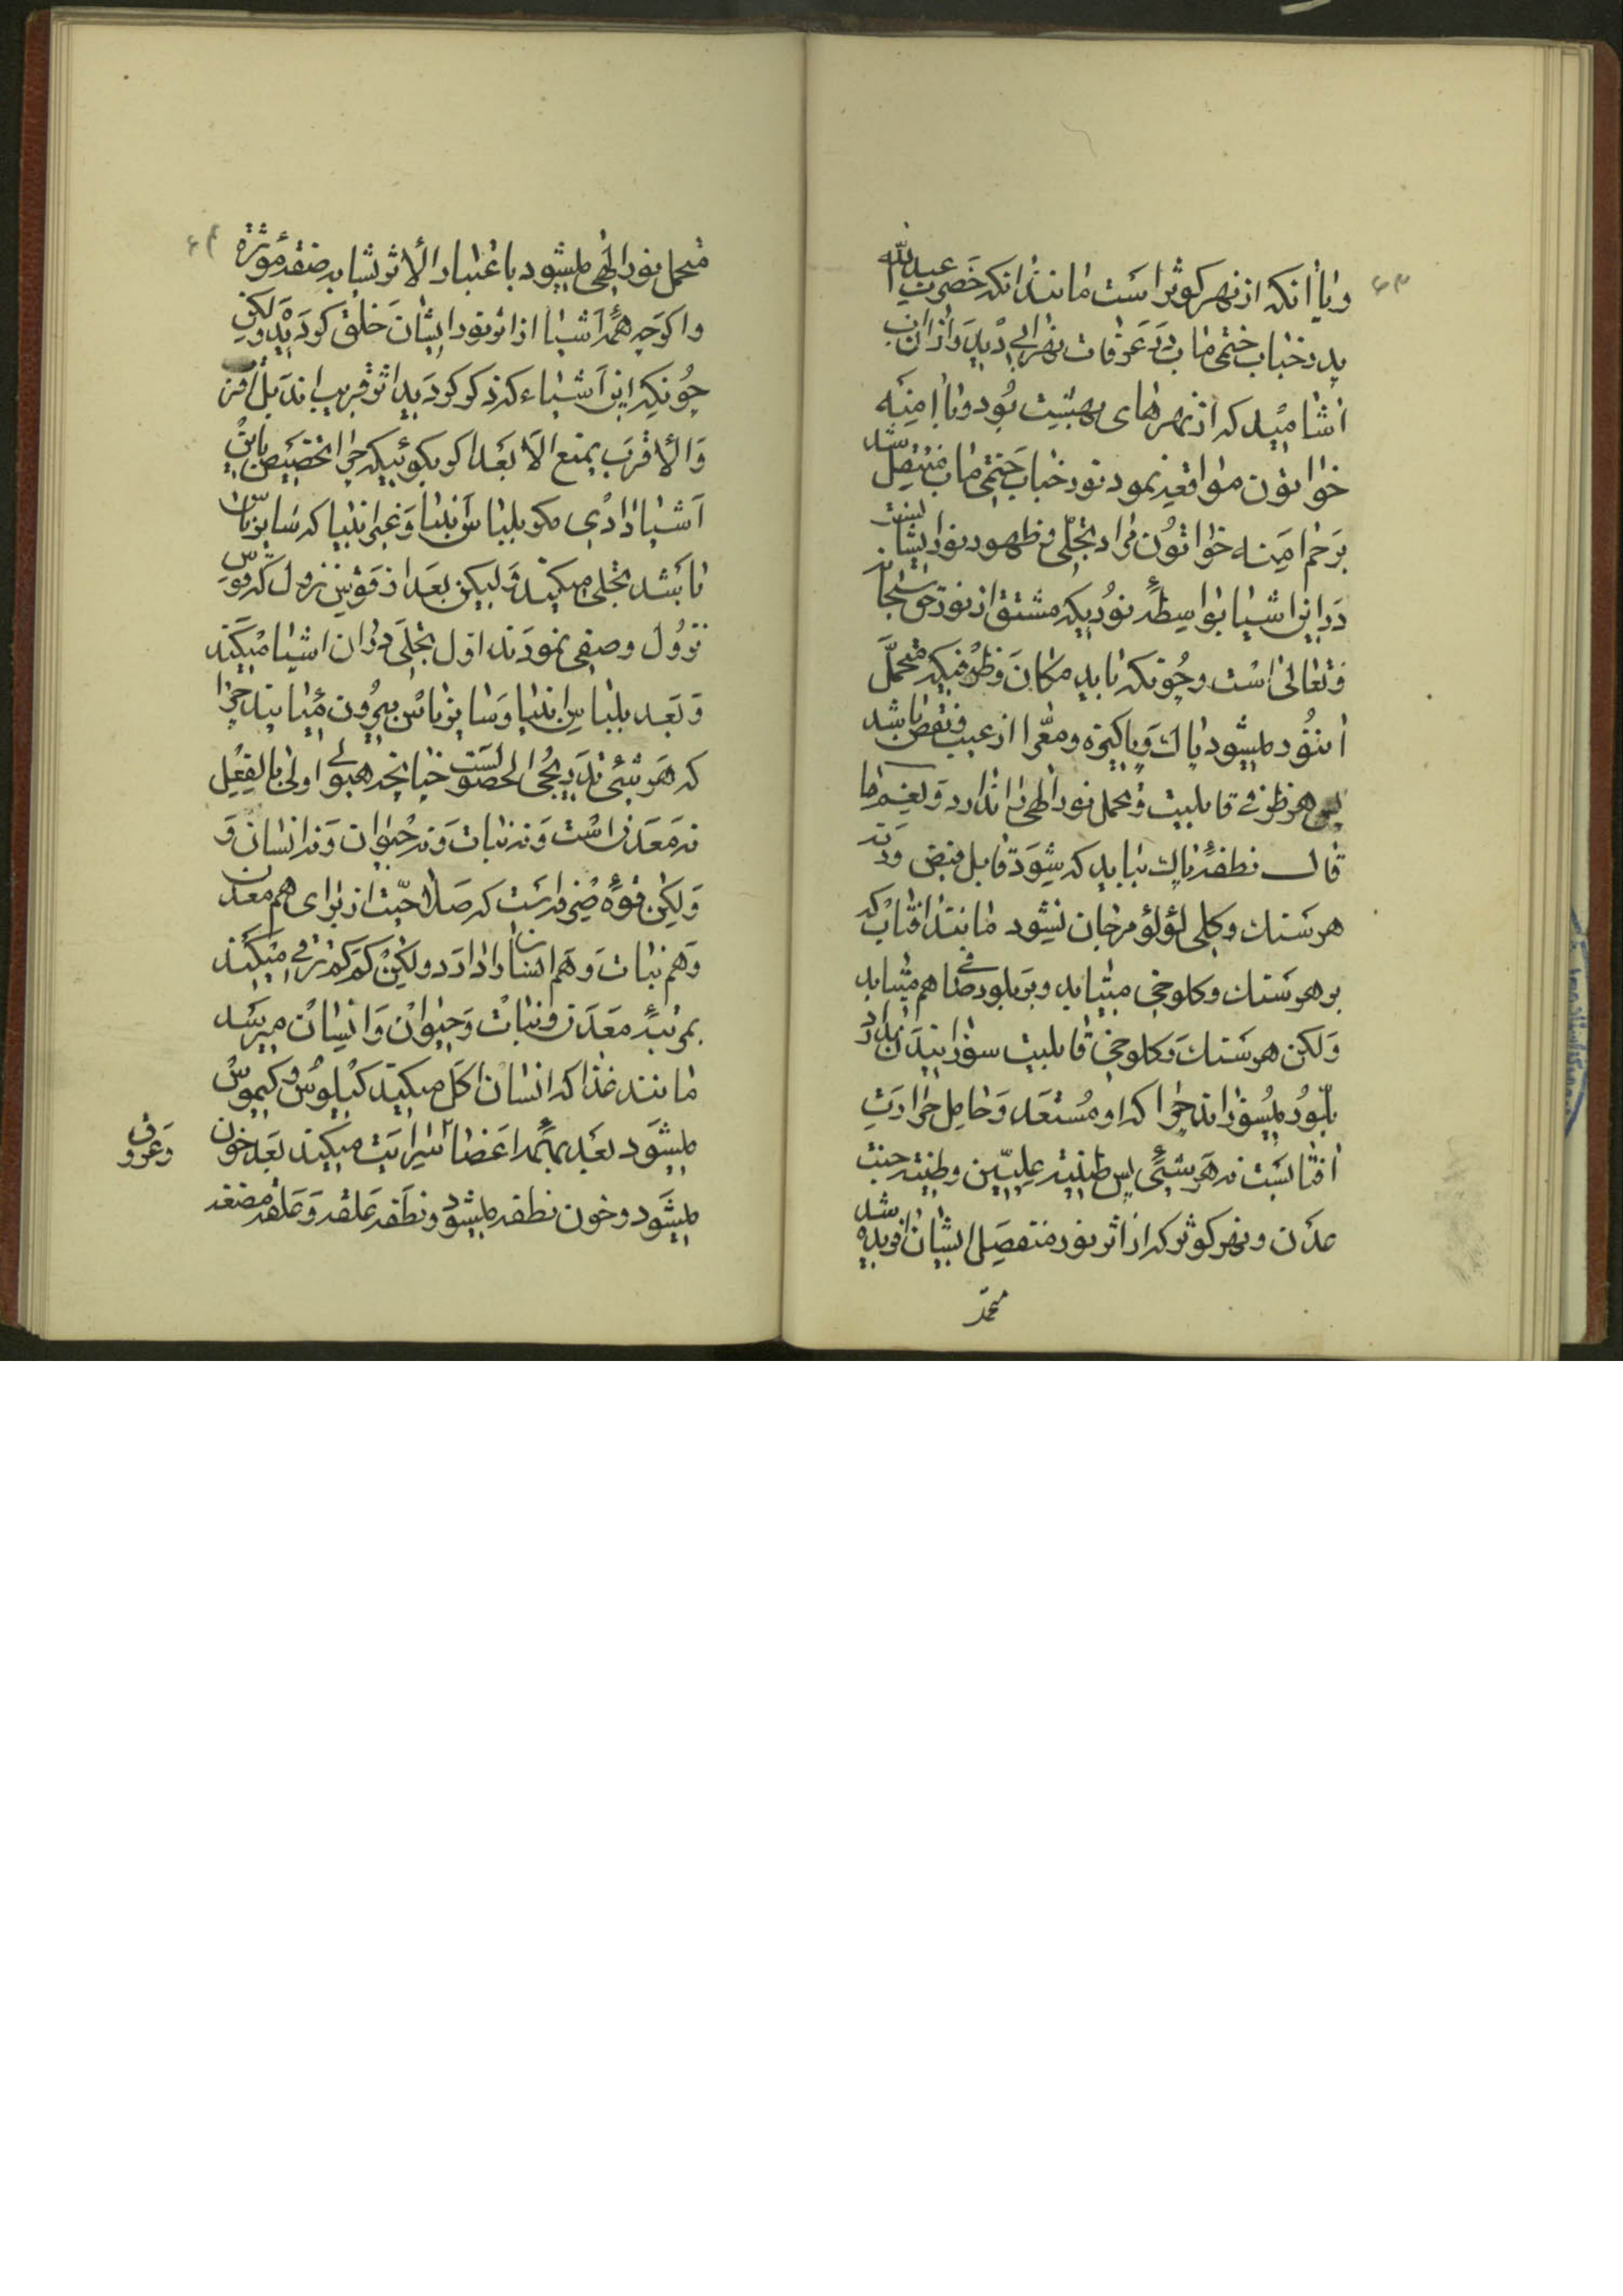 ۶۳
و یا آنکه از نهر کوثر است مانند آنکه حضرت عبدالله
پدر جناب ختمی ماب در عرفات نهر آبی دید و از آن آب
اشامید که از نهرهای بهشت بود و با امنه
خواتون مواقعه نمود نور جناب ختمی ماب منتقل شد
برحم امنه خواتون مراد تجلی و ظهور نور ایشانست
در این اشیا بواسطهٔ نوریکه مشتق از نور حق سبحانه
و تعالی است و چونکه باید مکان و ظرفیکه متحمل
این نور میشود پاک و پاکیزه و معرا از عیب و نقص باشد
پس هر ظرفی قابلیت و تحمل نور الهی را ندارد و لنعم ما
قال نطفهٔ پاک بباید که شود قابل فیض ورنه
هر سنک و کلی لؤلؤ مرجان نشود مانند افتاب که
بر هر سنک و کلوخی میتابد و بر بلور صافی هم میتابد
ولکن هر سنک و کلوخی قابلیت سوزانیدن ندارد
بلور میسوزاند چرا که او مستعد و حامل حرارت
افتابست نه هر شیئی پس طینت علیین و طینت جنت
عدن و نهر کوثر که از اثر نور منفصل ایشان افریده شد
متحمل
۶۴
متحمل نور الهی میشود باعتبار الأثر یشابه صفة مؤثره
و اکرچه همهٔ اشیا از اثر نور ایشان خلق کردید ولکن
چونکه این اشیاء که ذکر کردید اثر قریب اند بل اقرب
والأقرب یمنع الابعد اکر بکوئید که چرا تخصیص باین
اشیا دادی مکر بلباس انبیا و غیر انبیا که سایر ناس
باشد تجلی میکند ولیکن بعد از قوس نزول که قوس
نزول وصفی نمودند اول تجلی در ان اشیا میکند
و بعد بلباس انبیا و سایر ناس بیرون میایند چرا
که هر شیئی تدریجی الحصولست چنانچه هیولای اولی بالفعل
نه معدن است و نه نبات و نه حیوان و نه انسان و
ولکن قوهٔ صرفه است که صلاحیت از برای هم معدن
و هم نبات و هم انسان را دارد ولکن کم کم ترقی میکند
بمرتبهٔ معدن و نبات و حیوان و انسان میرسد
مانند غذا که انسان اکل میکند کیلوس و کیموس
میشود بعد بهمهٔ اعضا سرایت میکند بعد خون
و عروق
میشود و خون نطفه میشود و نطفه علقه و علقه مضغه